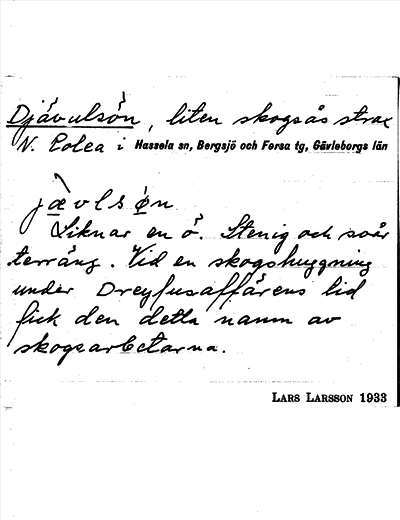 Djävulsön, liten skogsås strax
N. Lolea i Hassela sn, Bergsjö och Forsa tg, Gävleborgs län
jævlsøn
Liknar en ö. Stenig och svår
terräng. Vid en skogshuggning
under Dreyfusaffärens tid
fick den detta namn av
skogsarbetarna.
LARS LARSSON 1933